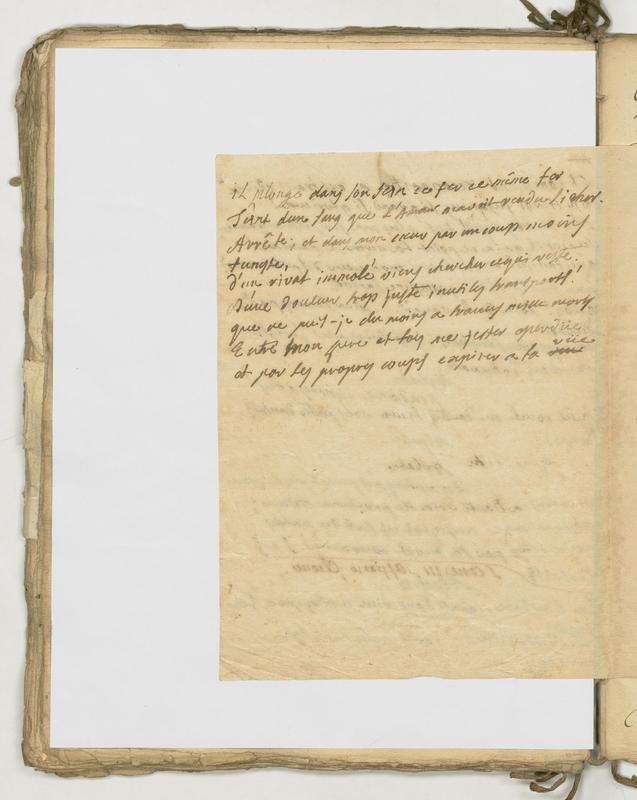 il plonge dans son sein ce fer ce même fer
Teint d'un sang que L'Amour m'avoit rendu si cher.
Arrête, et dans mon cœur par un coup moins
funeste,
d'un rival immolé viens chercher ce qui reste.
D'une douleur trop juste inutiles transports!
que ne puis-je du moins a travers mille morts
Entre mon pere et toy me jetter eperduë
et par tes propres coups expirer a ta vüe